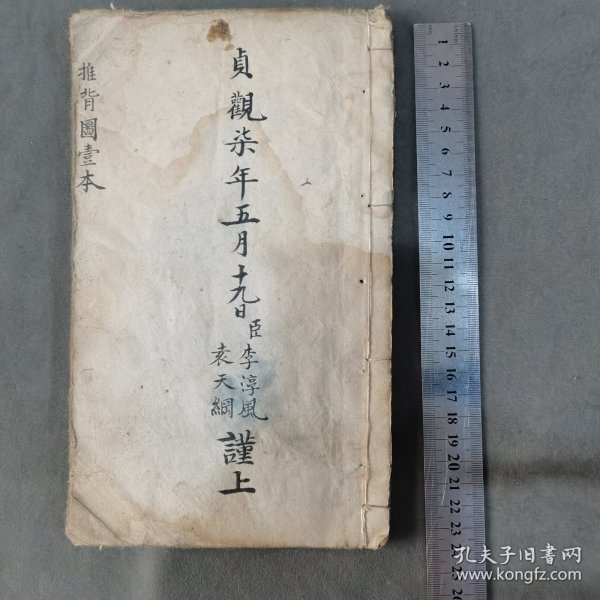 貞觀柒年五月十九日
臣李淳風
袁天綱
謹上
推背圖壹本
1
2
3
4
5
6
7
8
9
10
11
12
13
14
15
16
17
18
19
20
21
22
23
24
25
26
孔夫子旧书网
www.kongfz.com